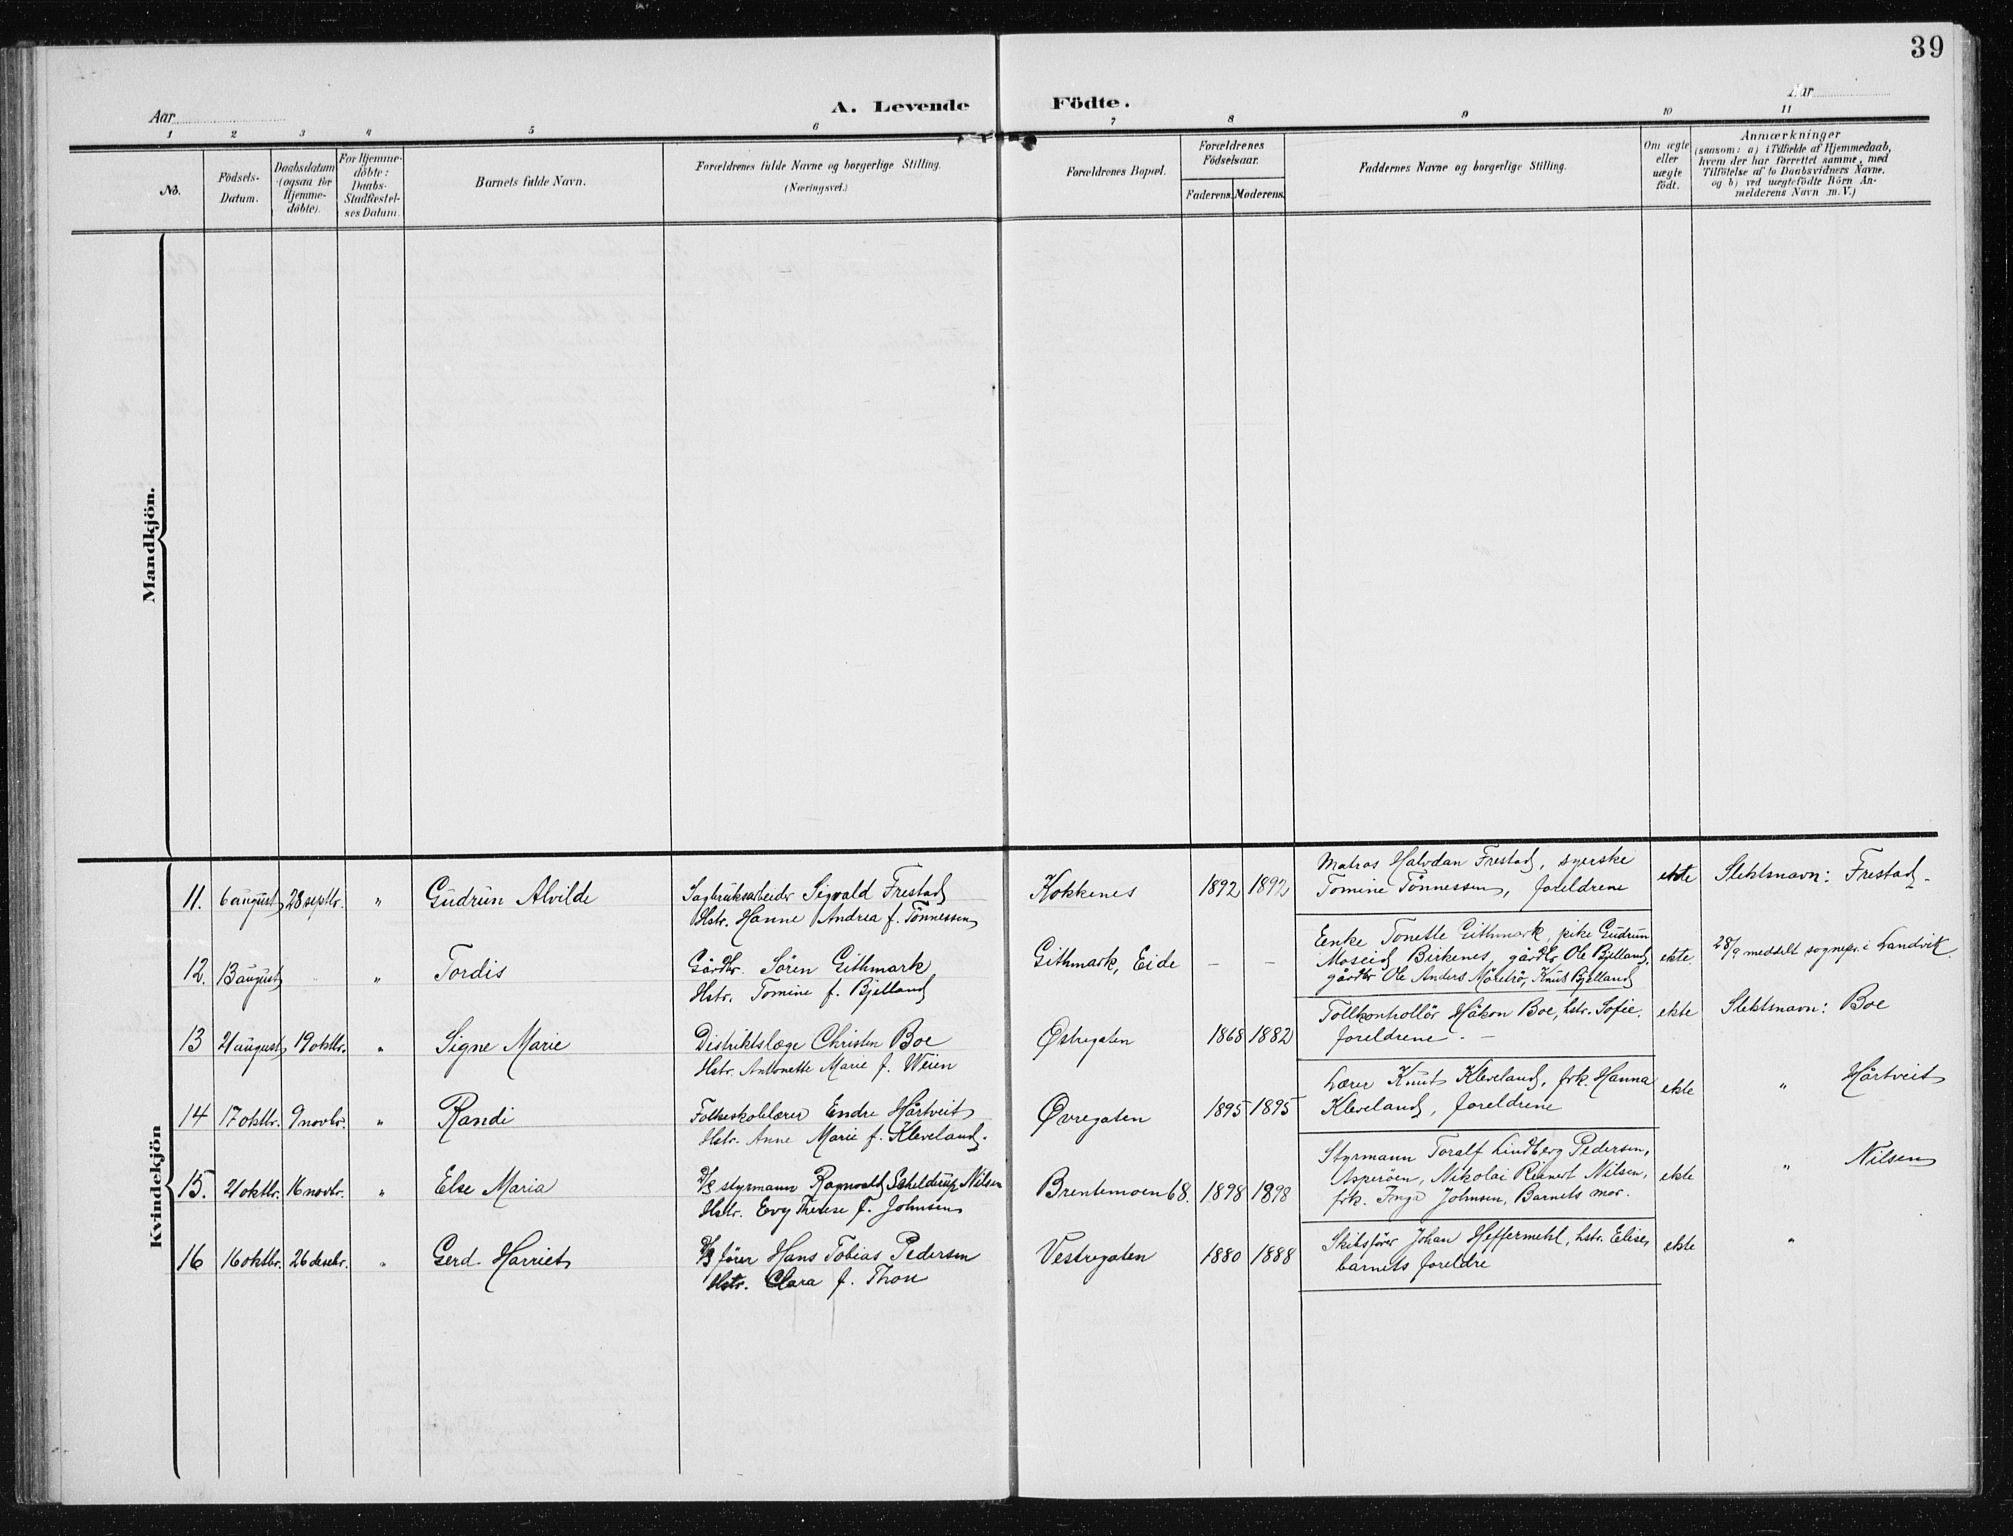 39
Aar A. Levende Födte. Aar
1 2 3 4 5 6 7 8 9 10 11
No.
Födsels-
Datum.
Daabsdatum
(ogsaa for
Hjemme-
döbte).
For Hjemme-
döbte:
Daabs-
Stadfæstel-
ses Datum.
Barnets fulde Navn.
Forældrenes fulde Navne og borgerlige Stilling.
(Næringsvei.)
Forældrenes Bopæl.
Forældrenes
Födselsaar.
Faderens. Moderens.
Faddernes Navne og borgerlige Stilling.
Om ægte
eller
uægte
födt.
Anmærkninger
(saasom: a) i Tilfælde af Hjemmedaab,
hvem der har forrettet samme, med
Tilföielse af to Daabsvidners Navne,
og b) ved uægtefödte Börn An-
melderens Navn m. V.)
Mandkjön.
Kvindekjön
11. 6 august 28 septbr. " Gudrun Alvilde
Sagbruksarbeider Sigvald Frestad
Hstr. Hanne Andrea f. Tönnessen
Kokkenes 1892 1892
Matros Halvdan Frestad, syerske
Tomine Tönnessen, foreldrene
ekte Slektsnavn: Frestad
12. 13 august " Tordis
Gårdbr. Sören Githmark
Hstr. Tomine f. Bjelland
Githmark, Eide - -
Enke Tonette Githmark, pike Gudrun
Moseid Birkenes, gårdbr Ole Bjelland,
gårdbr Ole Anders Möretrö, Knut Bjelland
ekte. 28/9 meddelt sognepr. i Landvik.
13 21 august 19 oktbr. " Signe Marie
Distriktslæge Christen Boe
Hstr. Antonette Marie f. Weien
Østregaten 1868 1882
Tollkontrollör Håkon Boe, hstr. Sofie.
foreldrene. -
ekte Slektsnavn: Boe
14 17 oktbr. 9 novbr. " Randi
Folkeskolelærer Endre Hårtveit
Hstr. Anne Marie f. Kleveland.
Øvregaten 1895 1895
Lærer Knut Kleveland, frk. Hanna
Kleveland, foreldrene
ekte " Hårtveit
15. 21 oktbr. 16 novbr. " Else Maria
D/S styrmann Ragnvald Scheldrup Nilsen
Hstr. Evy Therese f. Johnsen
Brentemoen 68. 1898 1898
Styrmann Toralf Lindberg Pedersen,
Asperöen, Nikolai Reinert Nilsen,
frk. Inga Johnsen, Barnets mor.
ekte " Nilsen
16 16 oktbr. 26 desbr. " Gerd Harriet
D/S förer Hans Tobias Pedersen
Hstr. Clara f. Thon
Vestregaten 1880 1888
Skibsförer Johan Heffermehl, hstr. Elise,
barnets foreldre
ekte "